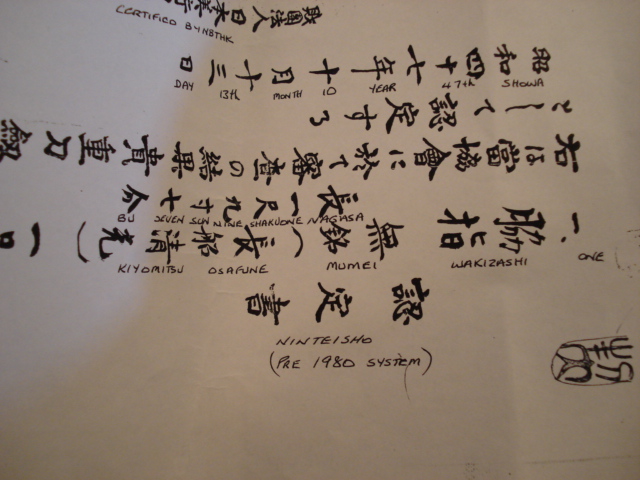 認定書
NINTEISHO
(PRE 1980 SYSTEM)
一、脇指 無銘(長船清光) 一口
KIYOMITSU OSAFUNE MUMEI WAKIZASHI ONE
長一尺九寸七分
BU SEVEN SUN NINE SHAKU ONE NAGASA
右は當協會に於て審査の結果貴重刀劔
として認定する
昭和四十七年十月十三日
DAY 13th MONTH 10 YEAR 47th SHOWA
財團法人日本美
CERTIFIED BY NBTHK